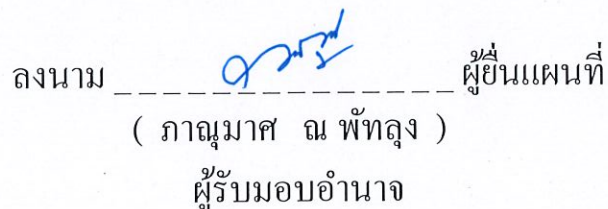 ลงนาม ผู้ยื่นแผนที่
( ภาณุมาศ ณ พัทลุง )
ผู้รับมอบอำนาจ